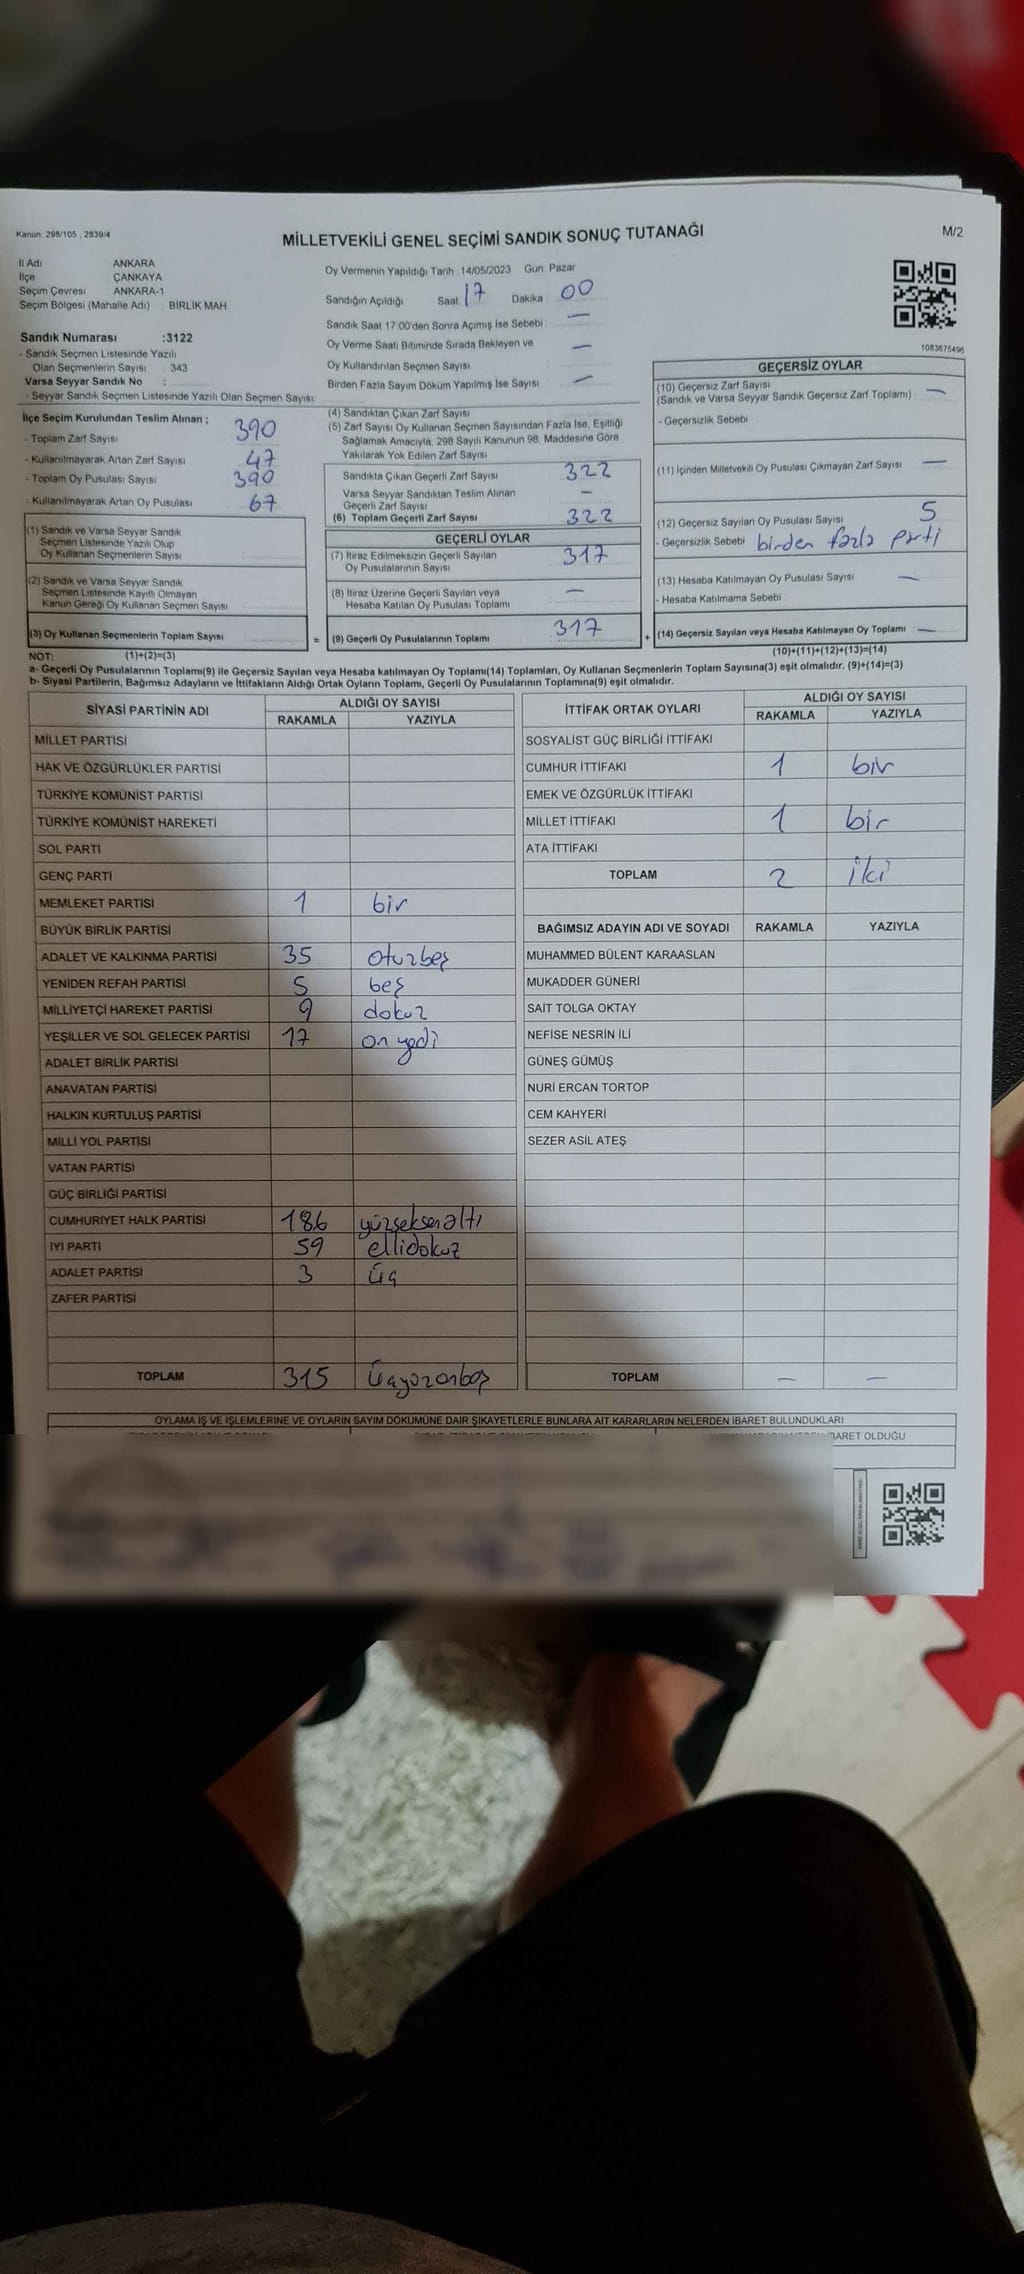 Kanun: 298/105 , 2839/4
MİLLETVEKİLİ GENEL SEÇİMİ SANDIK SONUÇ TUTANAĞI
M/2
İl Adı : ANKARA
İlçe : ÇANKAYA
Seçim Çevresi : ANKARA-1
Seçim Bölgesi (Mahalle Adı) : BİRLİK MAH
Sandık Numarası :3122
- Sandık Seçmen Listesinde Yazılı
Olan Seçmenlerin Sayısı : 343
Varsa Seyyar Sandık No :
- Seyyar Sandık Seçmen Listesinde Yazılı Olan Seçmen Sayısı:
Oy Vermenin Yapıldığı Tarih :14/05/2023 Gün: Pazar
Sandığın Açıldığı Saat 17 Dakika : 00
Sandık Saat 17:00'den Sonra Açılmış İse Sebebi : —
Oy Verme Saati Bitiminde Sırada Bekleyen ve —
Oy Kullandırılan Seçmen Sayısı
Birden Fazla Sayım Döküm Yapılmış İse Sayısı —
1083675496
İlçe Seçim Kurulundan Teslim Alınan ;
- Toplam Zarf Sayısı 390
- Kullanılmayarak Artan Zarf Sayısı 47
- Toplam Oy Pusulası Sayısı 390
- Kullanılmayarak Artan Oy Pusulası 67
(1) Sandık ve Varsa Seyyar Sandık
Seçmen Listesinde Yazılı Olup
Oy Kullanan Seçmenlerin Sayısı
(2) Sandık ve Varsa Seyyar Sandık
Seçmen Listesinde Kayıtlı Olmayan
Kanun Gereği Oy Kullanan Seçmen Sayısı
(3) Oy Kullanan Seçmenlerin Toplam Sayısı =
(4) Sandıktan Çıkan Zarf Sayısı
(5) Zarf Sayısı Oy Kullanan Seçmen Sayısından Fazla İse, Eşitliği
Sağlamak Amacıyla, 298 Sayılı Kanunun 98. Maddesine Göre
Yakılarak Yok Edilen Zarf Sayısı
Sandıkta Çıkan Geçerli Zarf Sayısı 322
Varsa Seyyar Sandıktan Teslim Alınan —
Geçerli Zarf Sayısı
(6) Toplam Geçerli Zarf Sayısı 322
GEÇERLİ OYLAR
(7) İtiraz Edilmeksizin Geçerli Sayılan 317
Oy Pusulalarının Sayısı
(8) İtiraz Üzerine Geçerli Sayılan veya —
Hesaba Katılan Oy Pusulası Toplamı
(9) Geçerli Oy Pusulalarının Toplamı 317 +
GEÇERSİZ OYLAR
(10) Geçersiz Zarf Sayısı
(Sandık ve Varsa Seyyar Sandık Geçersiz Zarf Toplamı) —
- Geçersizlik Sebebi
(11) İçinden Milletvekili Oy Pusulası Çıkmayan Zarf Sayısı —
(12) Geçersiz Sayılan Oy Pusulası Sayısı 5
- Geçersizlik Sebebi birden fazla parti
(13) Hesaba Katılmayan Oy Pusulası Sayısı —
- Hesaba Katılmama Sebebi
(14) Geçersiz Sayılan veya Hesaba Katılmayan Oy Toplamı —
NOT: (1)+(2)=(3) (10)+(11)+(12)+(13)=(14)
a- Geçerli Oy Pusulalarının Toplamı(9) ile Geçersiz Sayılan veya Hesaba katılmayan Oy Toplamı(14) Toplamları, Oy Kullanan Seçmenlerin Toplam Sayısına(3) eşit olmalıdır. (9)+(14)=(3)
b- Siyasi Partilerin, Bağımsız Adayların ve İttifakların Aldığı Ortak Oyların Toplamı, Geçerli Oy Pusulalarının Toplamına(9) eşit olmalıdır.
SİYASİ PARTİNİN ADI ALDIĞI OY SAYISI
RAKAMLA YAZIYLA
MİLLET PARTİSİ
HAK VE ÖZGÜRLÜKLER PARTİSİ
TÜRKİYE KOMÜNİST PARTİSİ
TÜRKİYE KOMÜNİST HAREKETİ
SOL PARTİ
GENÇ PARTİ
MEMLEKET PARTİSİ 1 bir
BÜYÜK BİRLİK PARTİSİ
ADALET VE KALKINMA PARTİSİ 35 otuzbeş
YENİDEN REFAH PARTİSİ 5 beş
MİLLİYETÇİ HAREKET PARTİSİ 9 dokuz
YEŞİLLER VE SOL GELECEK PARTİSİ 17 on yedi
ADALET BİRLİK PARTİSİ
ANAVATAN PARTİSİ
HALKIN KURTULUŞ PARTİSİ
MİLLİ YOL PARTİSİ
VATAN PARTİSİ
GÜÇ BİRLİĞİ PARTİSİ
CUMHURİYET HALK PARTİSİ 186 yüzseksenaltı
İYİ PARTİ 59 ellidokuz
ADALET PARTİSİ 3 üç
ZAFER PARTİSİ
TOPLAM 315 üçyüzonbeş
İTTİFAK ORTAK OYLARI ALDIĞI OY SAYISI
RAKAMLA YAZIYLA
SOSYALİST GÜÇ BİRLİĞİ İTTİFAKI
CUMHUR İTTİFAKI 1 bir
EMEK VE ÖZGÜRLÜK İTTİFAKI
MİLLET İTTİFAKI 1 bir
ATA İTTİFAKI
TOPLAM 2 iki
BAĞIMSIZ ADAYIN ADI VE SOYADI RAKAMLA YAZIYLA
MUHAMMED BÜLENT KARAASLAN
MUKADDER GÜNERİ
SAİT TOLGA OKTAY
NEFİSE NESRİN İLİ
GÜNEŞ GÜMÜŞ
NURİ ERCAN TORTOP
CEM KAHYERİ
SEZER ASİL ATEŞ
TOPLAM — —
OYLAMA İŞ VE İŞLEMLERİNE VE OYLARIN SAYIM DÖKÜMÜNE DAİR ŞİKAYETLERLE BUNLARA AİT KARARLARIN NELERDEN İBARET BULUNDUKLARI
İBARET OLDUĞU